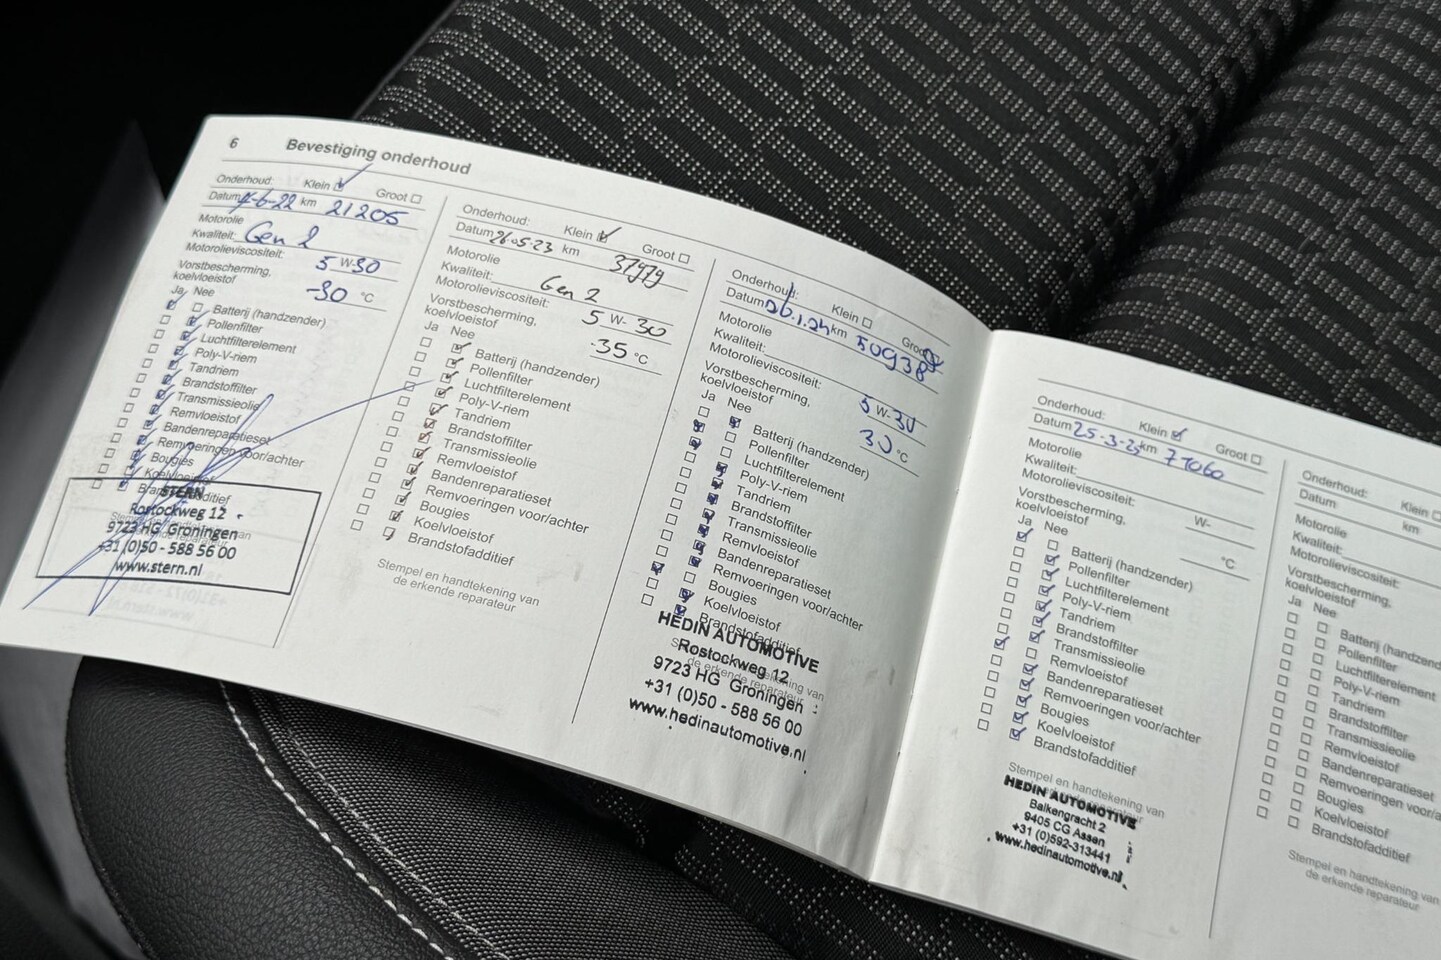 6 Bevestiging onderhoud
Onderhoud: Klein Groot
Datum km 21205
Motorolie
Kwaliteit: Gen 2
Motorolieviscositeit: 5 W-30
Vorstbescherming,
koelvloeistof -30 °C
Ja Nee
Batterij (handzender)
Pollenfilter
Luchtfilterelement
Poly-V-riem
Tandriem
Brandstoffilter
Transmissieolie
Remvloeistof
Bandenreparatieset
Remvoeringen voor/achter
Bougies
Koelvloeistof
Brandstofadditief
STERN
Rostockweg 12
9723 HG Groningen
+31 (0)50 - 588 56 00
www.stern.nl
Onderhoud: Klein Groot
Datum 26.05.23 km 37979
Motorolie
Kwaliteit: Gen 2
Motorolieviscositeit: 5 W- 30
Vorstbescherming,
koelvloeistof -35 °C
Ja Nee
Batterij (handzender)
Pollenfilter
Luchtfilterelement
Poly-V-riem
Tandriem
Brandstoffilter
Transmissieolie
Remvloeistof
Bandenreparatieset
Remvoeringen voor/achter
Bougies
Koelvloeistof
Brandstofadditief
Stempel en handtekening van
de erkende reparateur
Onderhoud: Klein Groot
Datum 26.1.24 km 50938
Motorolie
Kwaliteit:
Motorolieviscositeit: 5 W-30
Vorstbescherming,
koelvloeistof 30 °C
Ja Nee
Batterij (handzender)
Pollenfilter
Luchtfilterelement
Poly-V-riem
Tandriem
Brandstoffilter
Transmissieolie
Remvloeistof
Bandenreparatieset
Remvoeringen voor/achter
Bougies
Koelvloeistof
Brandstofadditief
Stempel en handtekening van
de erkende reparateur
HEDIN AUTOMOTIVE
Rostockweg 12
9723 HG Groningen
+31 (0)50 - 588 56 00
www.hedinautomotive.nl
Onderhoud: Klein Groot
Datum 25-3-25 km 71060
Motorolie
Kwaliteit:
Motorolieviscositeit: W-
Vorstbescherming,
koelvloeistof °C
Ja Nee
Batterij (handzender)
Pollenfilter
Luchtfilterelement
Poly-V-riem
Tandriem
Brandstoffilter
Transmissieolie
Remvloeistof
Bandenreparatieset
Remvoeringen voor/achter
Bougies
Koelvloeistof
Brandstofadditief
Stempel en handtekening van
HEDIN AUTOMOTIVE
Balkengracht 2
9405 CG Assen
+31 (0)592-313441
www.hedinautomotive.nl
Onderhoud: Klein
Datum km
Motorolie
Kwaliteit:
Motorolieviscositeit:
Vorstbescherming,
koelvloeistof
Ja Nee
Batterij (handzend
Pollenfilter
Luchtfilterelement
Poly-V-riem
Tandriem
Brandstoffilter
Transmissieolie
Remvloeistof
Bandenreparatieset
Remvoeringen voor/a
Bougies
Koelvloeistof
Brandstofadditief
Stempel en handtekening van
de erkende reparateur